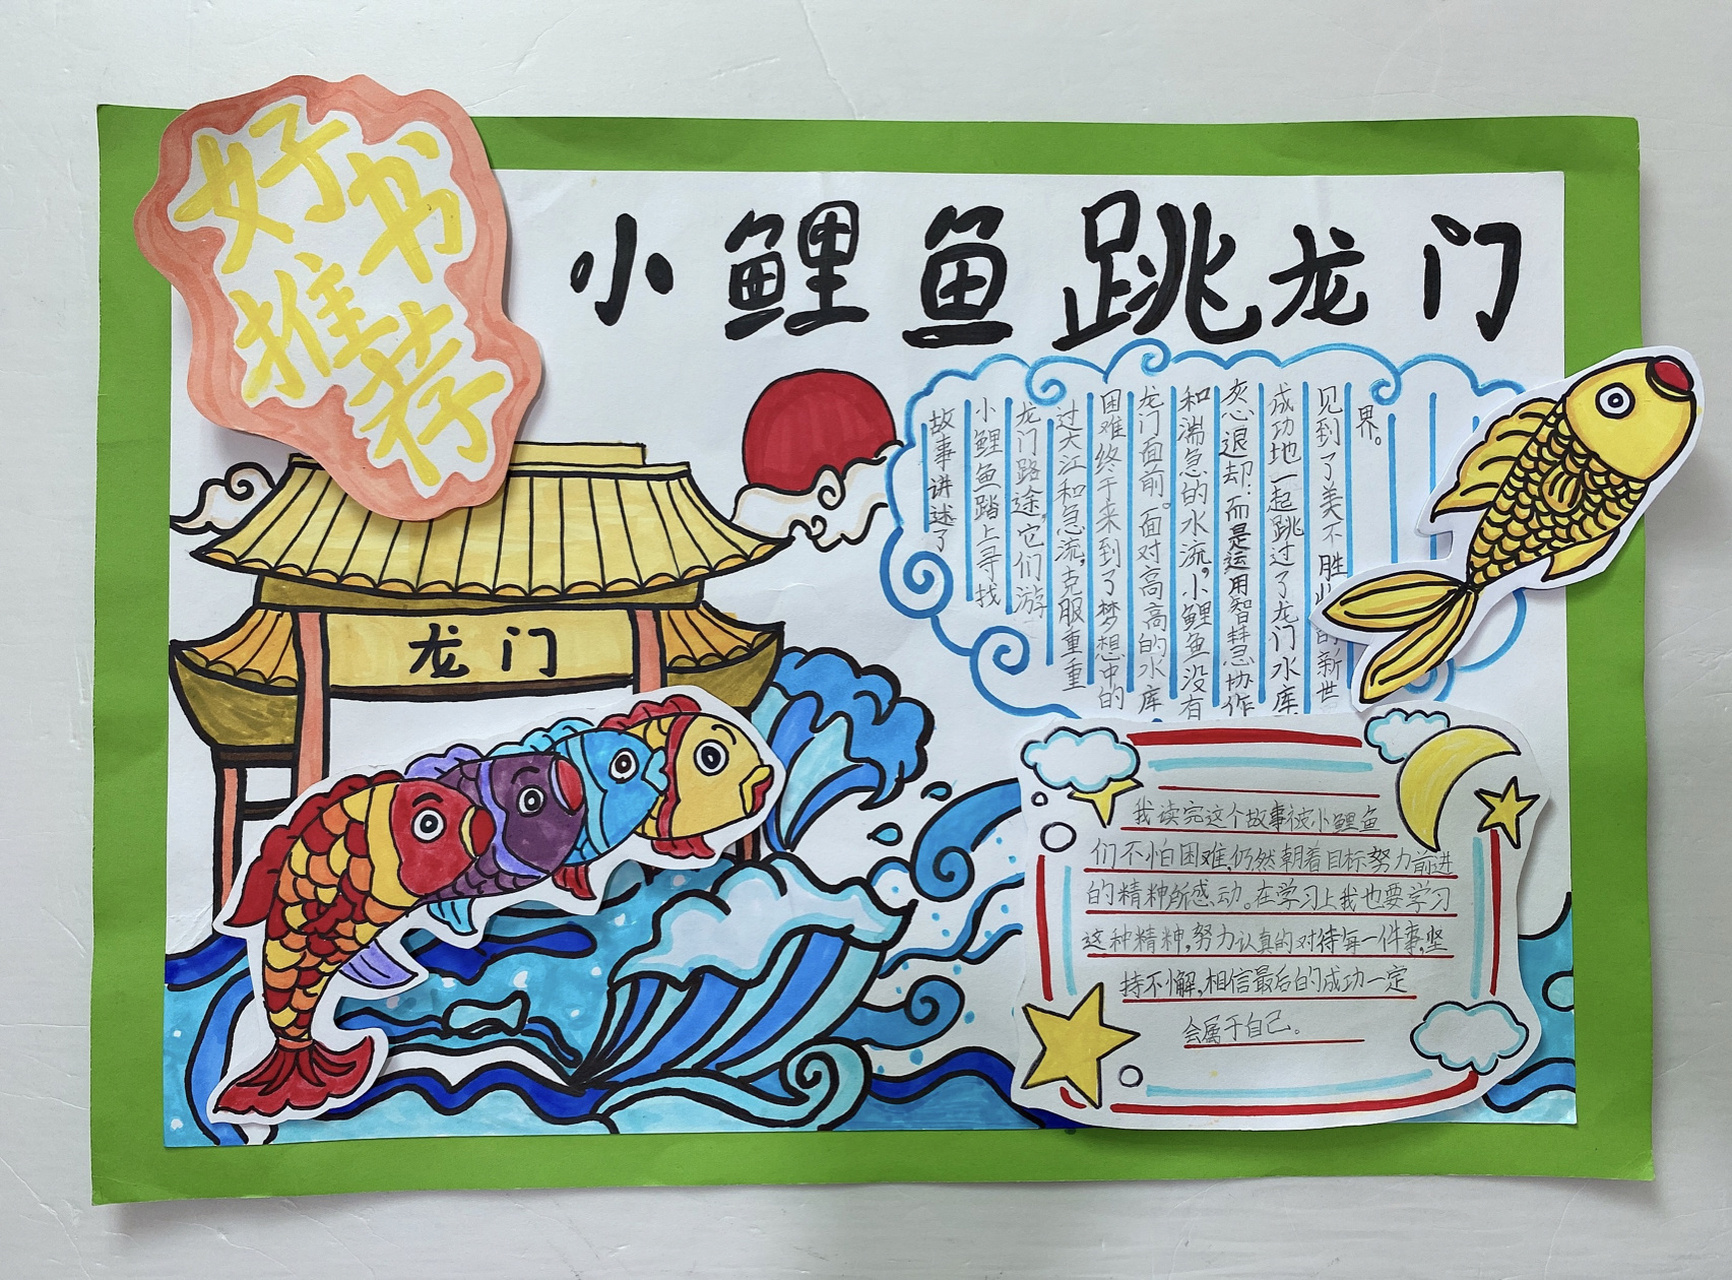 好书
推荐
小鲤鱼跳龙门
龙门
故事讲述了
小鲤鱼踏上寻找
龙门路途,它们游
过大江和急流,克服重重
困难终于来到了梦想中的
龙门面前。面对高高的水库
和湍急的水流。小鲤鱼没有
灰心退却:而是运用智慧协作
成功地一起跳过了龙门水库
见到了美不胜收的新世
界。
我读完这个故事被小鲤鱼
们不怕困难,仍然朝着目标努力前进
的精神所感动。在学习上我也要学习
这种精神,努力认真的对待每一件事,坚
持不懈,相信最后的成功一定
会属于自己。